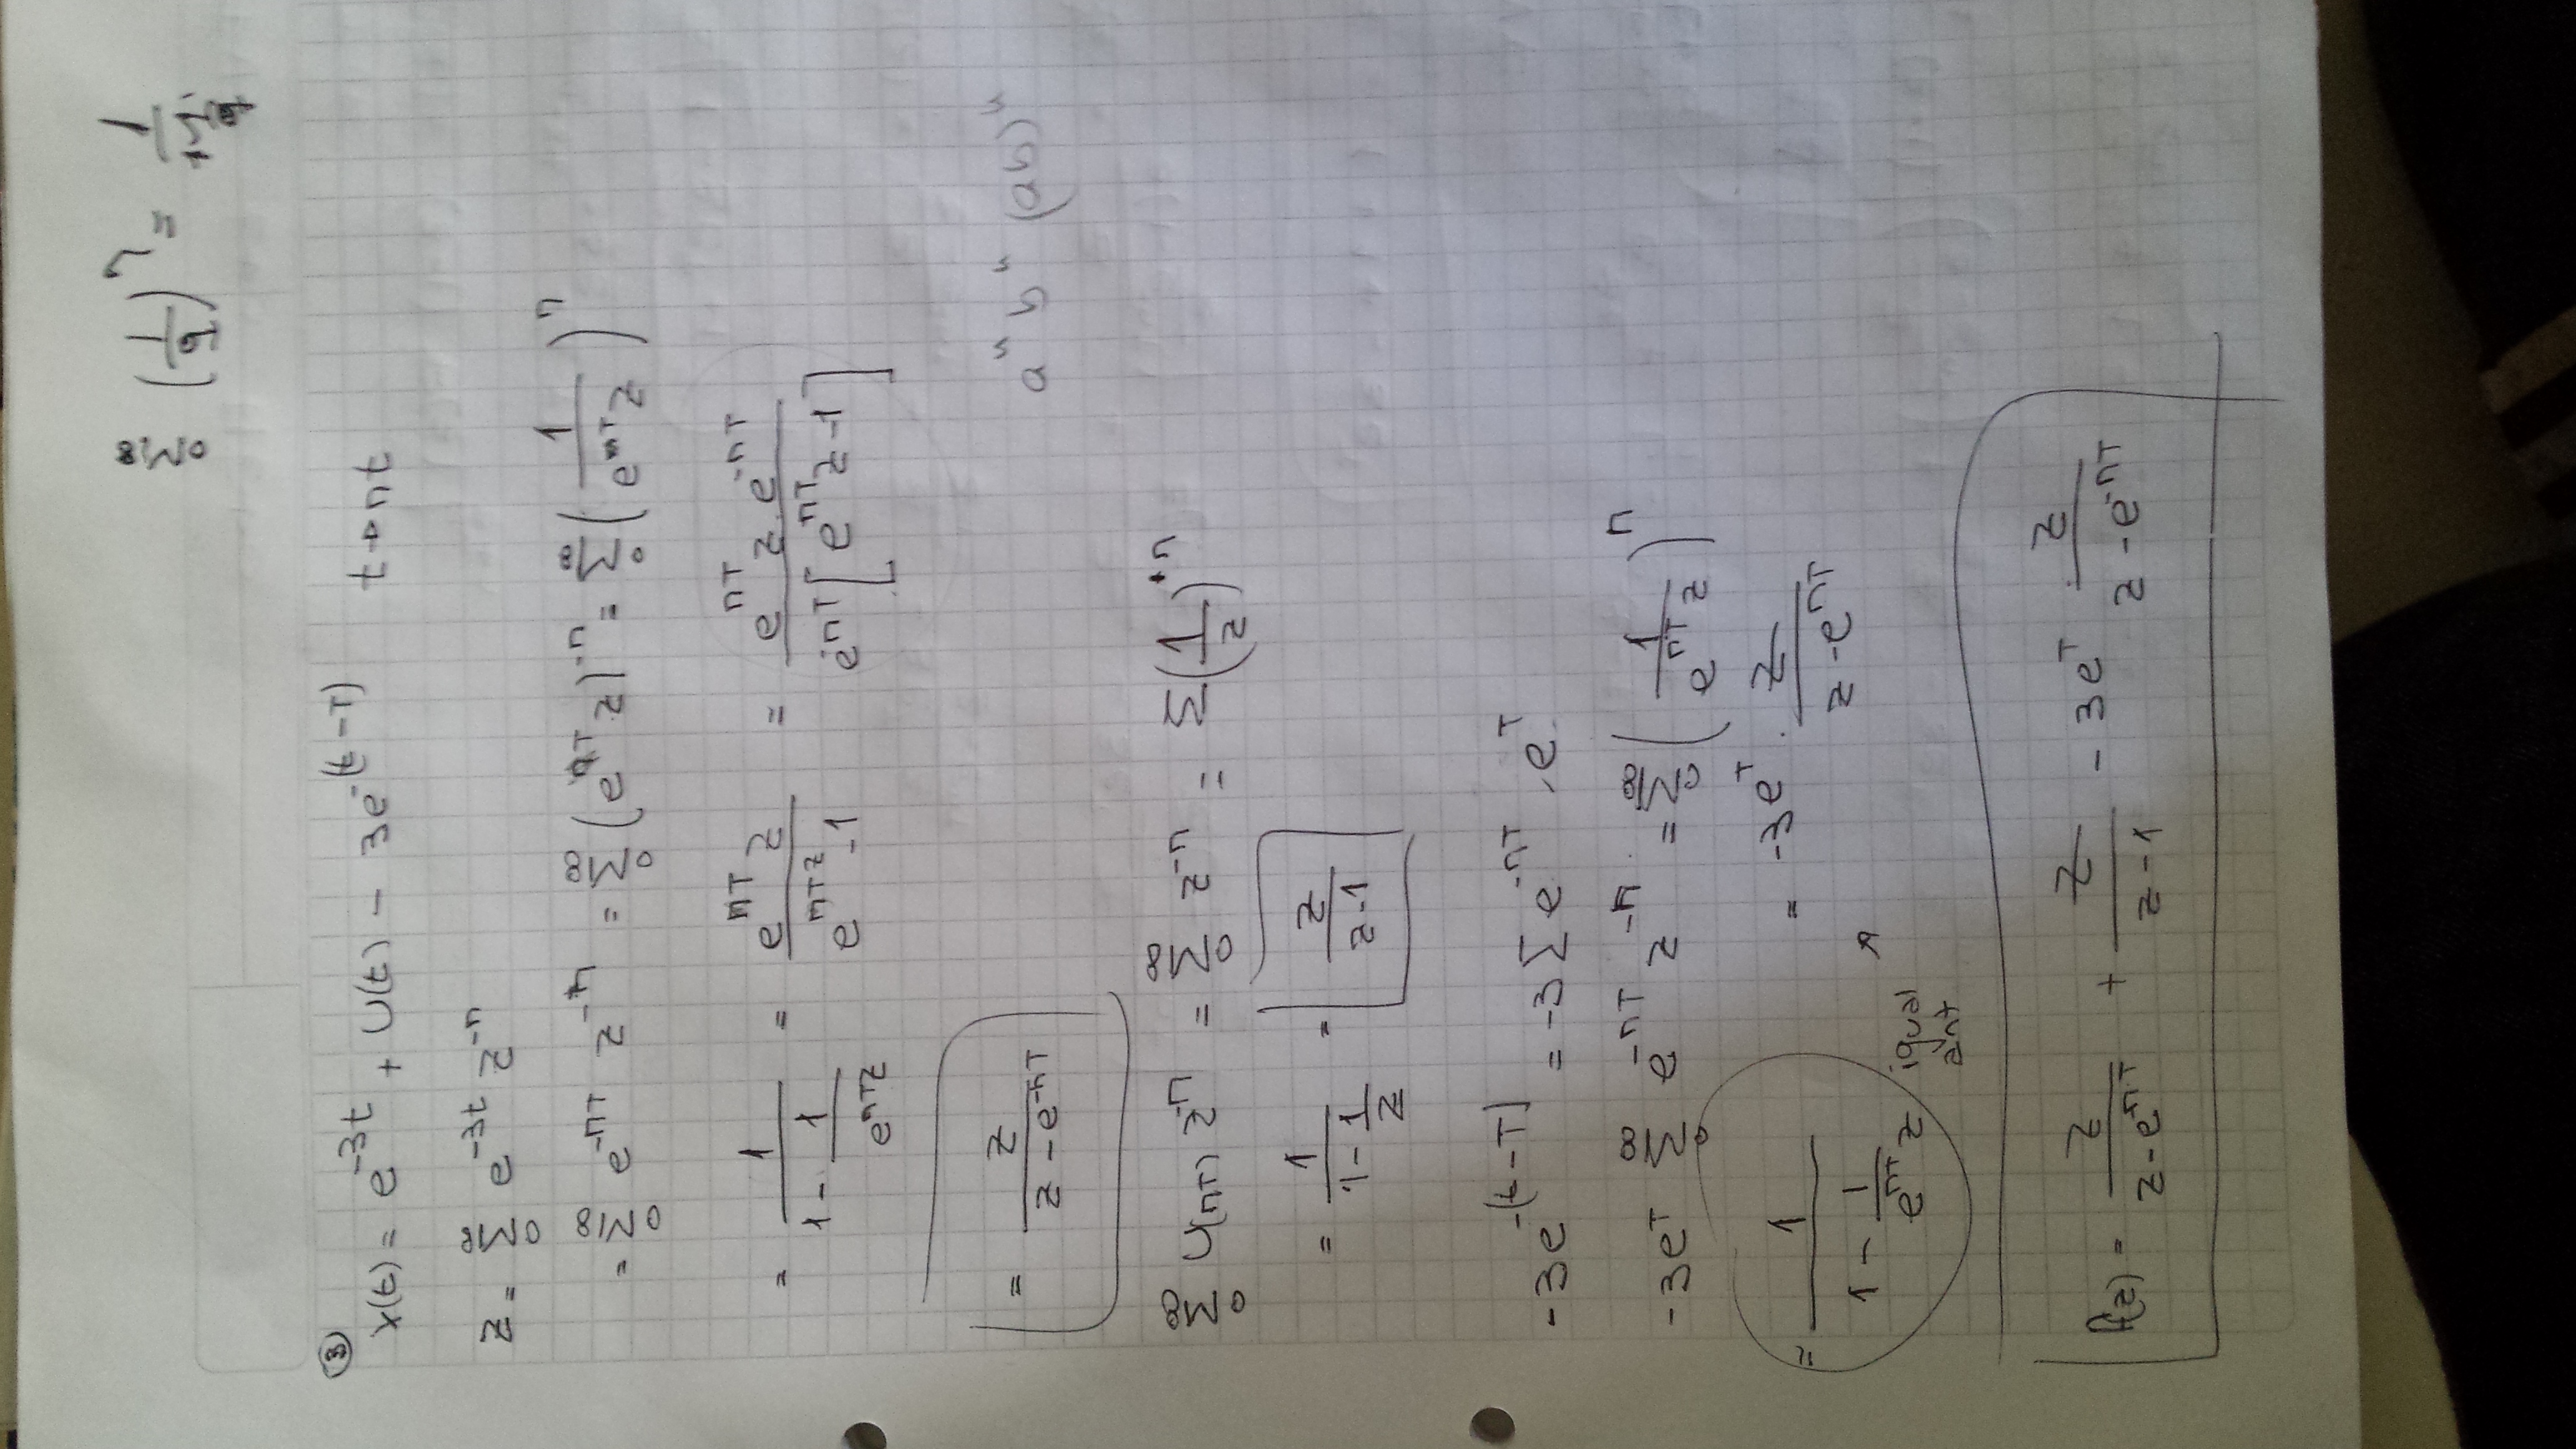 ∞Σ0 (1/q)^n = 1/(1-1/q)
③
x(t) = e^{-3t} + U(t) - 3e^{-(t-T)} t→nt
Z = Σ_0^∞ e^{-3t} z^{-n}
= Σ_0^∞ e^{-nT} z^{-n} = Σ_0^∞ (e^{nT} z)^{-n} = Σ_0^∞ (1/(e^{nT} z))^n
= 1/(1 - 1/(e^{nT} z)) = e^{nT} z/(e^{nT z} - 1) = e^{nT} z · e^{-nT}/(e^{-nT}[e^{nT} z - 1])
= z/(z - e^{-nT})
a^n b^n (ab)^n
Σ_0^∞ U(nT) z^{-n} = Σ_0^∞ z^{-n} = Σ(1/z)^{+n}
= 1/(1 - 1/z) = z/(z-1)
-3e^{-(t-T)} = -3 Σ e^{-nT} · e^T
-3e^T Σ_0^∞ e^{-nT} z^{-n} = Σ_0^∞ (1/(e^{nT} z))^n
= 1/(1 - 1/(e^{nT} z)) igual ant = -3e^T · z/(z - e^{nT})
f(z) = z/(z - e^{nT}) + z/(z-1) - 3e^T · z/(z - e^{-nT})